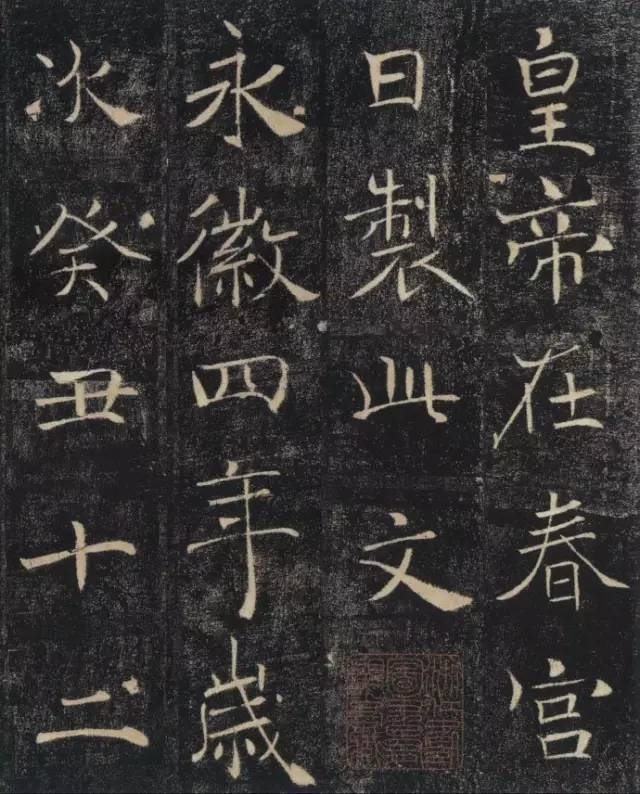 皇帝在春宫
日製此文
永徽四年歲
次癸丑十二